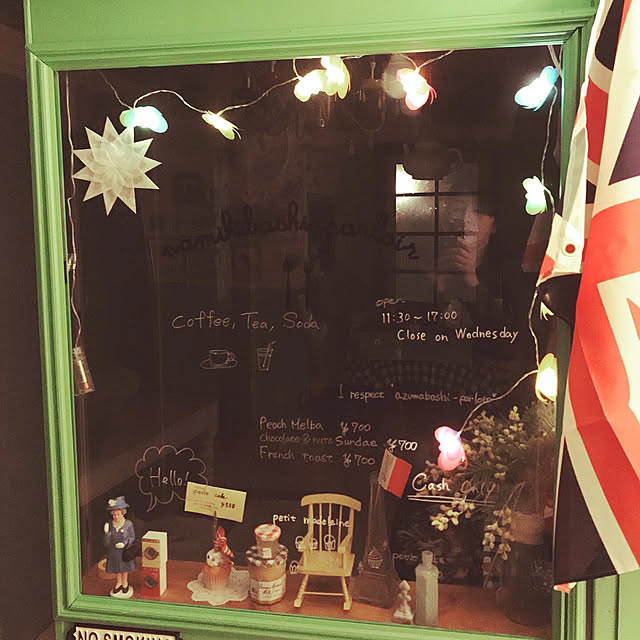 namikibashi-parlour
open
11:30~17:00
Close on Wednesday
Coffee, Tea, Soda
I respect "azumabashi-parlour"
Peach Melba ¥700
chocolate & nuts Sundae ¥700
French toast ¥700
Hello!
Cash only
¥350
petit madeleine
petit
NO SMOKING